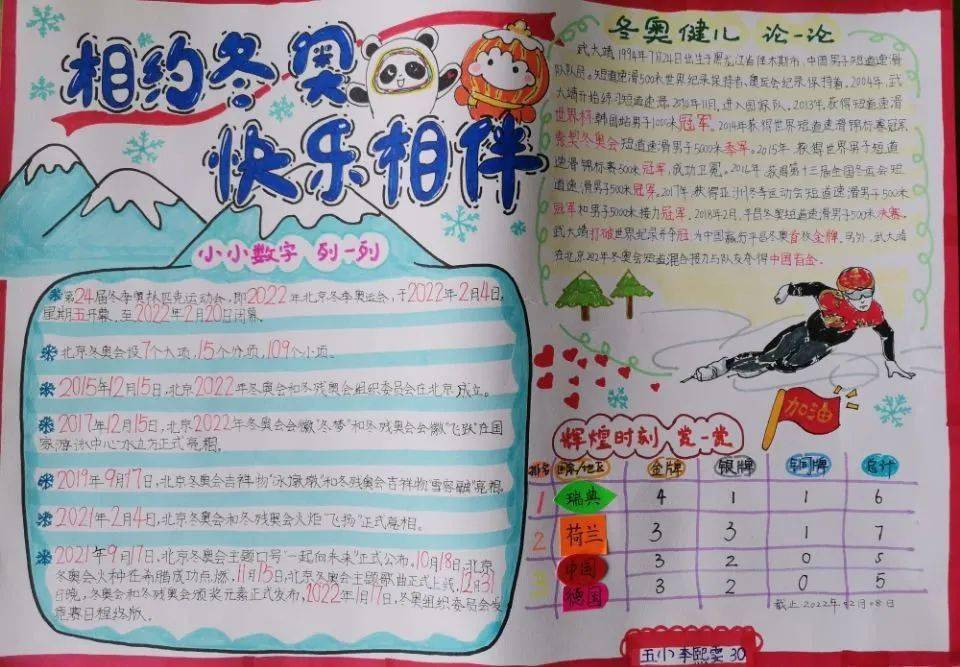 相约冬奥
快乐相伴
小小数字 列一列
第24届冬季奥林匹克运动会,即2022年北京冬季奥运会,于2022年2月4日,
星期五开幕,至2022年2月20日闭幕。
北京冬奥会设7个大项,15个分项,109个小项。
2015年12月15日,北京2022年冬奥会和冬残奥会组织委员会在北京成立。
2017年12月15日,北京2022年冬奥会会徽“冬梦”和冬残奥会会徽“飞跃”在国
家游泳中心“水立方”正式亮相。
2019年9月17日,北京冬奥会吉祥物“冰墩墩”和冬残奥会吉祥物“雪容融”亮相。
2021年2月4日,北京冬奥会和冬残奥会火炬“飞扬”正式亮相。
2021年9月17日,北京冬奥会主题口号“一起向未来”正式公布,10月18日,北京
冬奥会火种在希腊成功点燃,11月15日,北京冬奥会主题歌曲正式上线,12月31
日晚,冬奥会和冬残奥会颁奖元素正式发布,2022年1月17日,冬奥组织委员会发
竞赛日程终版。
冬奥健儿 论一论
武大靖1994年7月24日出生于黑龙江省佳木斯市,中国男子短道速滑
队队员。短道速滑500米世界纪录保持者、奥运会纪录保持者。2004年,武
大靖开始练习短道速滑。2010年11月,进入国家队。2013年,获得短道速滑
世界杯韩国站男子1000米冠军。2014年获得世界短道速滑锦标赛冠军,
索契冬奥会短道速滑男子5000米季军。2015年,获得世界男子短道
速滑锦标赛500米冠军,成功卫冕。2016年,获得第十三届全国冬运会短
道速滑男子500米冠军。2017年,获得亚洲冬季运动会短道速滑男子500米
冠军和男子5000米接力冠军。2018年2月,平昌冬奥短道速滑男子500米决赛,
武大靖打破世界纪录并夺冠,为中国赢得平昌冬奥首枚金牌。另外,武大靖
在北京2022年冬奥会短道混合接力与队友夺得中国首金。
加油
辉煌时刻 赏一赏
排名 国家/地区 金牌 银牌 铜牌 总计
1 瑞典 4 1 1 6
2 荷兰 3 3 1 7
中国 3 2 0 5
3
德国 3 2 0 5
截止2022年02月08日
五小 李熙雯 30